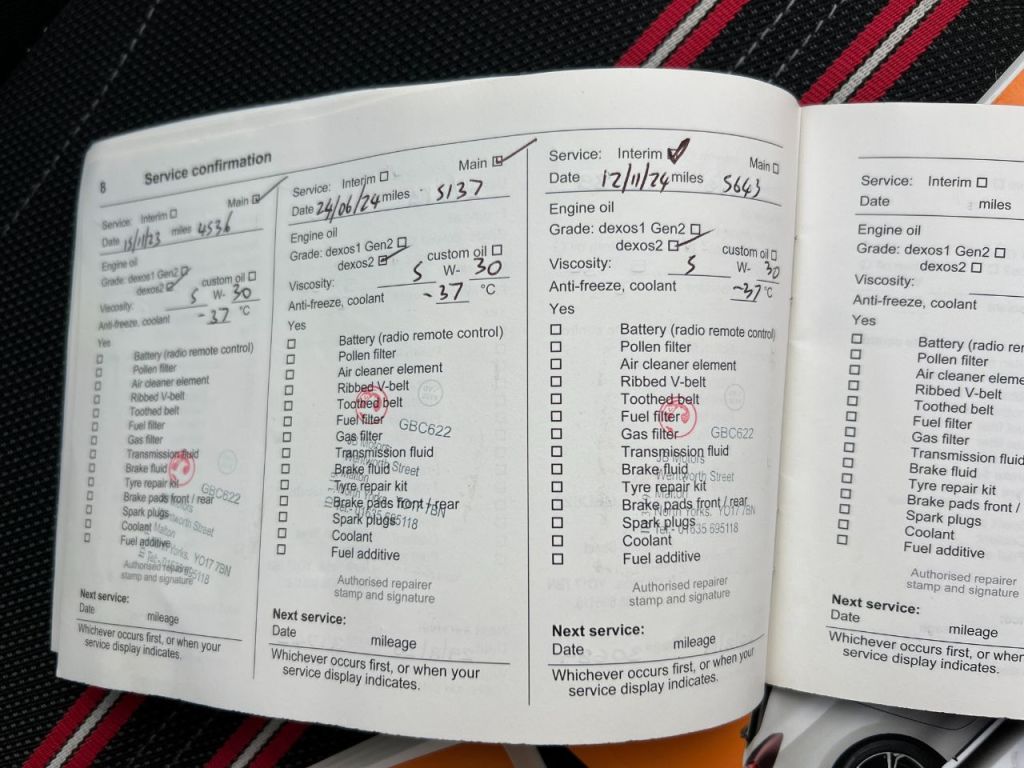 8 Service confirmation
Service: Interim Main
Date 15/11/23 miles 4536
Engine oil
Grade: dexos1 Gen2
dexos2 custom oil
Viscosity: 5 W- 30
Anti-freeze, coolant -37 °C
Yes
Battery (radio remote control)
Pollen filter
Air cleaner element
Ribbed V-belt
Toothed belt
Fuel filter
Gas filter
Transmission fluid
Brake fluid
Tyre repair kit
Brake pads front / rear
Spark plugs
Coolant
Fuel additive
GBC622
Wentworth Street
Malton
Yorks, YO17 7BN
Authorised repairer
stamp and signature
Next service:
Date mileage
Whichever occurs first, or when your
service display indicates.
Service: Interim Main
Date 24/06/24 miles 5137
Engine oil
Grade: dexos1 Gen2
dexos2 custom oil
Viscosity: 5 W- 30
Anti-freeze, coolant -37 °C
Yes
Battery (radio remote control)
Pollen filter
Air cleaner element
Ribbed V-belt
Toothed belt
Fuel filter
Gas filter
Transmission fluid
Brake fluid
Tyre repair kit
Brake pads front / rear
Spark plugs
Coolant
Fuel additive
GBC622
JB Motors
Wentworth Street
Malton
North Yorks, YO17 7BN
Tel:- 01635 695118
Authorised repairer
stamp and signature
Next service:
Date mileage
Whichever occurs first, or when your
service display indicates.
Service: Interim Main
Date 12/11/24 miles 5643
Engine oil
Grade: dexos1 Gen2
dexos2 custom oil
Viscosity: 5 W- 30
Anti-freeze, coolant -37 °C
Yes
Battery (radio remote control)
Pollen filter
Air cleaner element
Ribbed V-belt
Toothed belt
Fuel filter
Gas filter
Transmission fluid
Brake fluid
Tyre repair kit
Brake pads front / rear
Spark plugs
Coolant
Fuel additive
GBC622
JB Motors
Wentworth Street
Malton
North Yorks, YO17 7BN
Tel:- 01635 695118
Authorised repairer
stamp and signature
Next service:
Date mileage
Whichever occurs first, or when your
service display indicates.
Service: Interim
Date miles
Engine oil
Grade: dexos1 Gen2
dexos2
Viscosity:
Anti-freeze, coolant
Yes
Battery (radio rem
Pollen filter
Air cleaner eleme
Ribbed V-belt
Toothed belt
Fuel filter
Gas filter
Transmission fluid
Brake fluid
Tyre repair kit
Brake pads front /
Spark plugs
Coolant
Fuel additive
Authorised repairer
stamp and signature
Next service:
Date mileage
Whichever occurs first, or when
service display indicates.